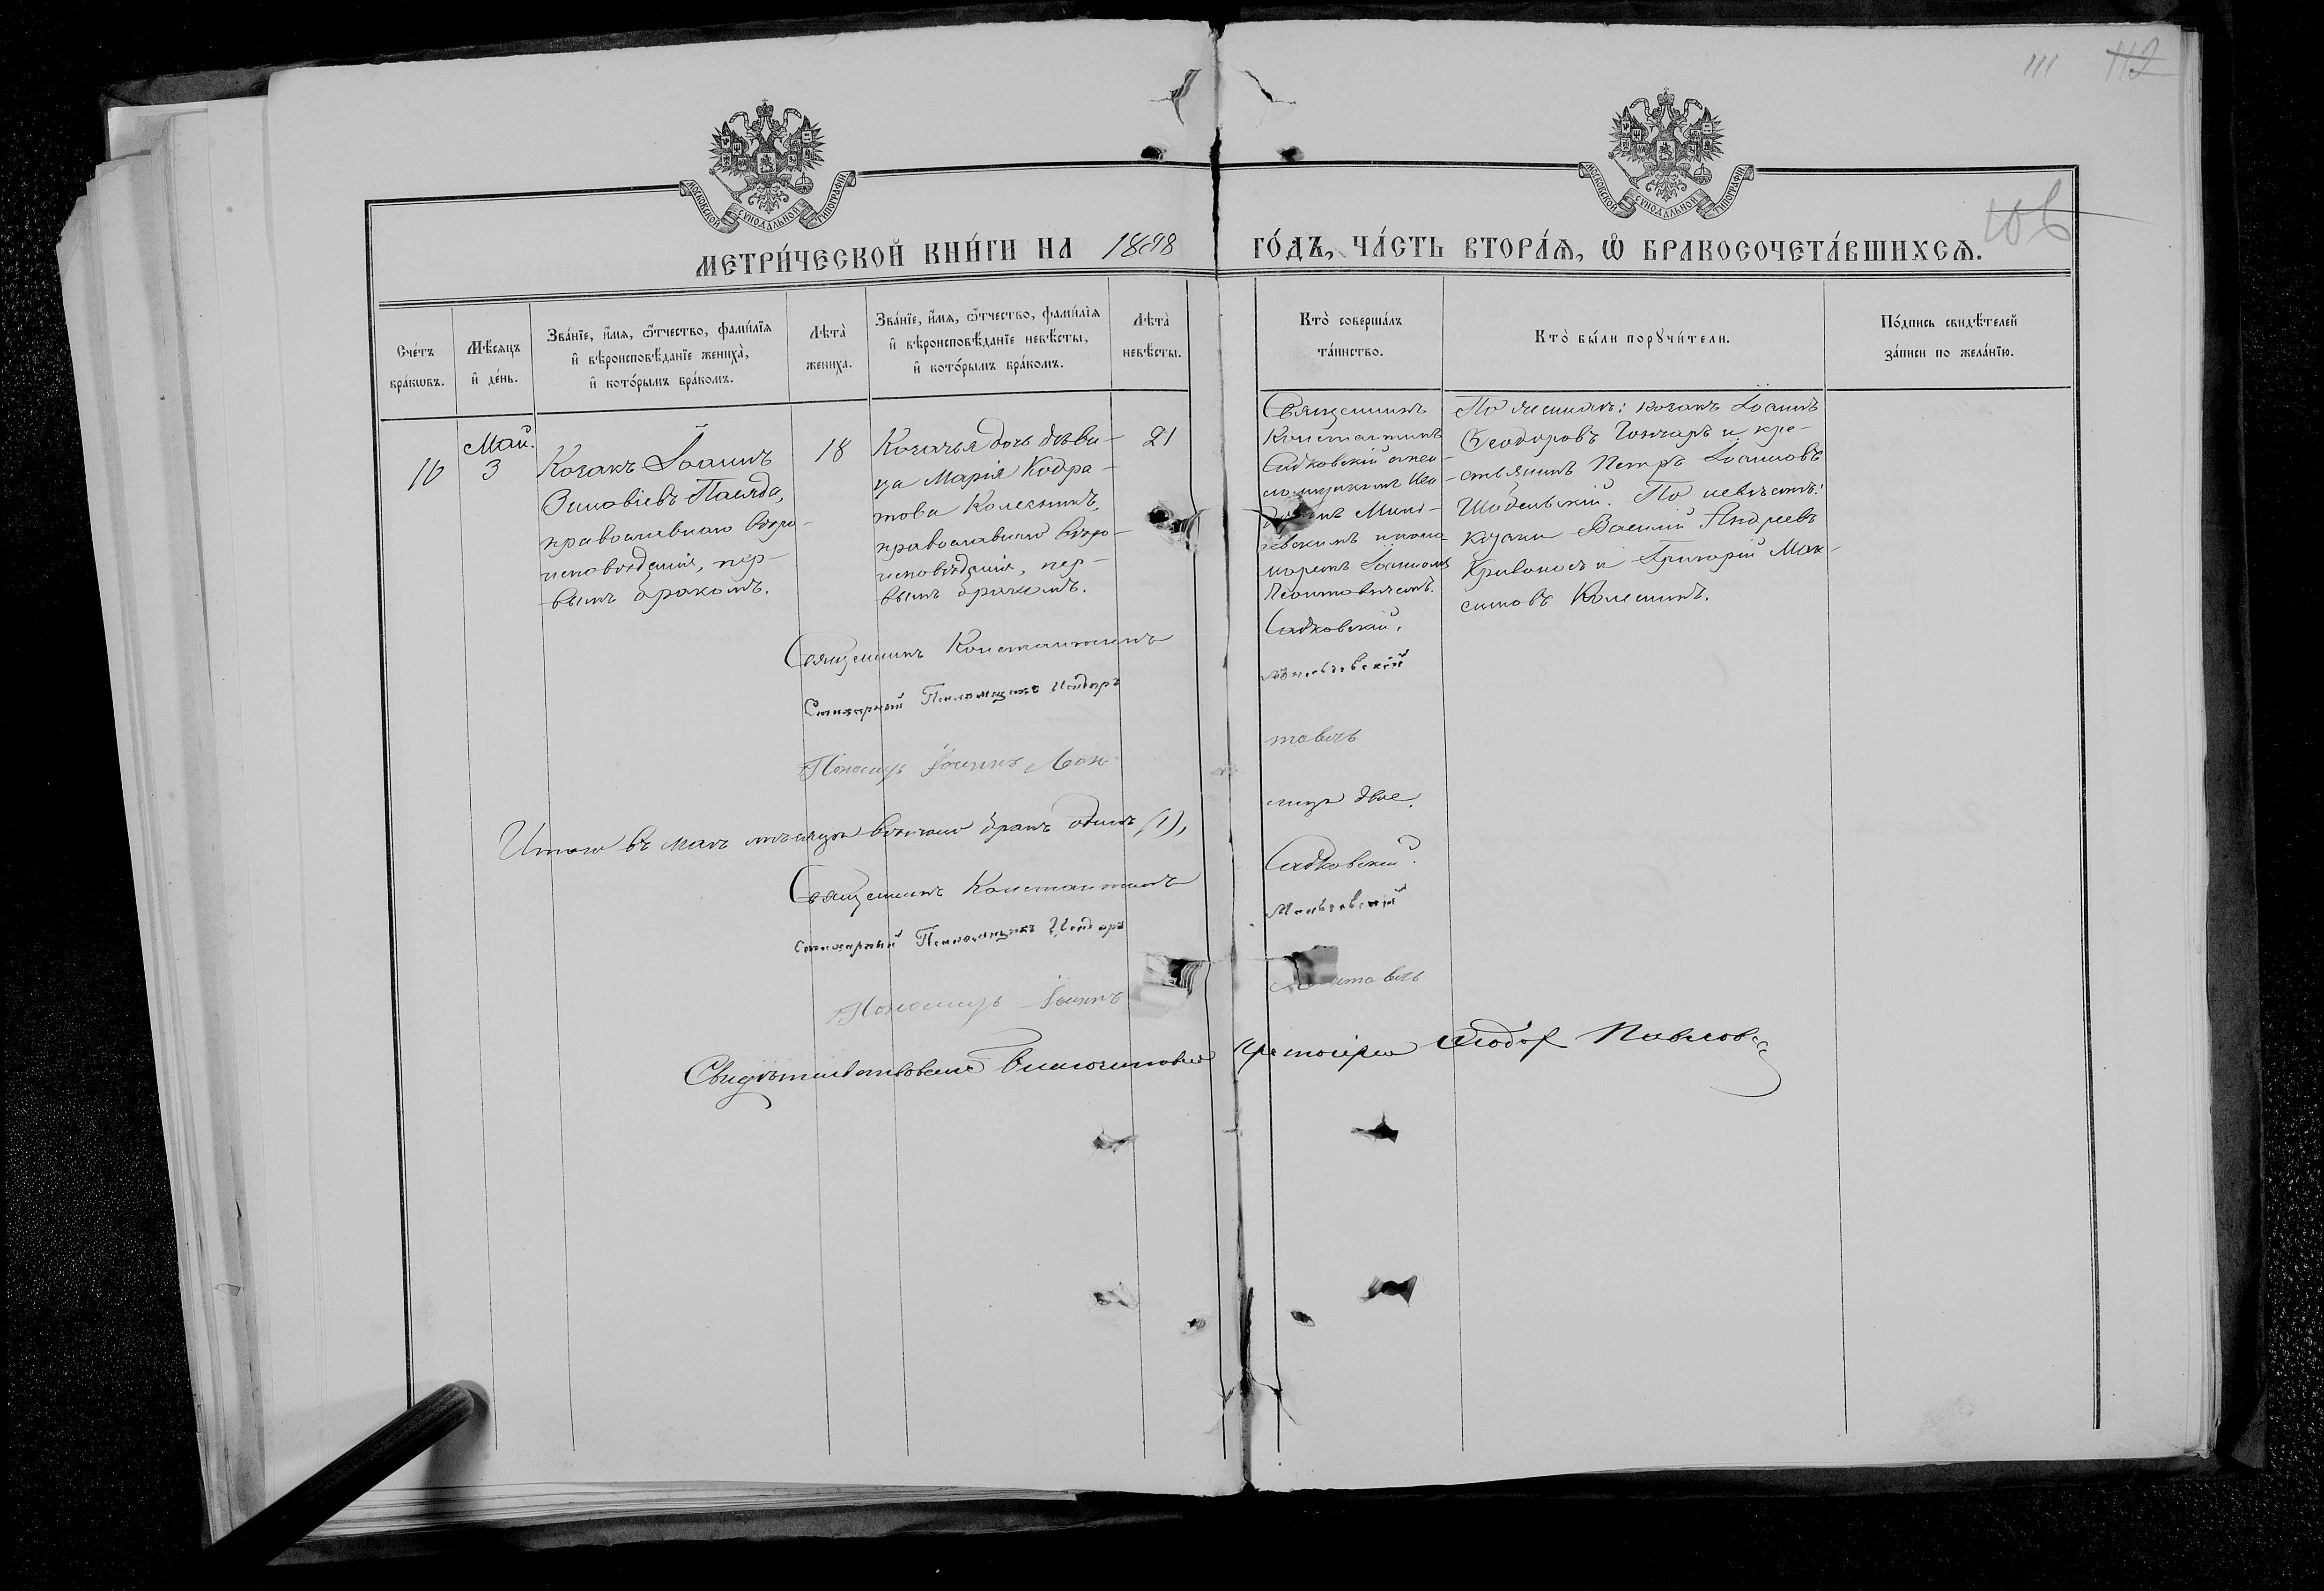 111 112
МОСКОВСКОЙ СѴНОДАЛЬНОЙ ТИПОГРАФІИ
МОСКОВСКОЙ СѴНОДАЛЬНОЙ ТИПОГРАФІИ
МЕТРИ́ЧЕСКОЙ КНИ́ГИ НА 1898 ГО́ДЪ, ЧА́СТЬ ВТОРА́Ѧ, Ѡ҆ БРАКОСОЧЕТА́ВШИХСѦ.
Сче́тъ
бра́кѡвъ.
Мѣ́сяцъ
и҆ де́нь.
Зва́нїе, и҆́мѧ, ѻ҆́тчество, фами́лїѧ
и҆ вѣроисповѣ́данїе жениха̀,
и҆ кото́рымъ бра́комъ.
Лѣ́та̀
жениха̀.
Зва́нїе, и҆́мѧ, ѻ҆́тчество, фами́лїѧ
и҆ вѣроисповѣ́данїе невѣ́сты,
и҆ кото́рымъ бра́комъ.
Лѣ́та̀
невѣ́сты.
Кто̀ соверша́лъ
та́инство.
Кто̀ бы́ли порꙋчи́тели.
По́дпись свидѣ́телей
за́писи по жела́нїю.
10
Май.
3
Козакъ Іоаннъ
Зиновіевъ
православнаго вѣро-
исповѣданія, пер-
вымъ бракомъ.
18
Козачья дочь дѣви-
ца Марія Кодра-
това Колесникъ,
православнаго вѣро-
исповѣданія, пер-
вымъ бракомъ.
21
Священникъ
Константинъ
Садковскій съ пса-
ломщикомъ Иси-
Миль-
евскимъ и поно-
маремъ Іоанномъ
Леонтовичемъ.
По женихѣ: козакъ Іоаннъ
Ѳеодоровъ Гончаръ и кре-
стьянинъ Петръ Іоанновъ
По невѣстѣ:
козаки Василій Андреевъ
Кривоносъ и Григорій Мак-
симовъ Колесникъ.
Священникъ Константинъ Садковскій.
Стихарный Псаломщикъ Исидоръ
Пономарь Іоаннъ Леон товичъ
Итого въ маѣ мѣсяцѣ вѣнчано бракъ одинъ (1), лицъ двое.
Священникъ Константинъ Садковскій.
Стихарный Псаломщикъ Исидоръ
Пономарь Іоаннъ нтовичъ
Свидѣтельствовалъ Благочинный Протоіерей Ѳеодоръ Павловъ